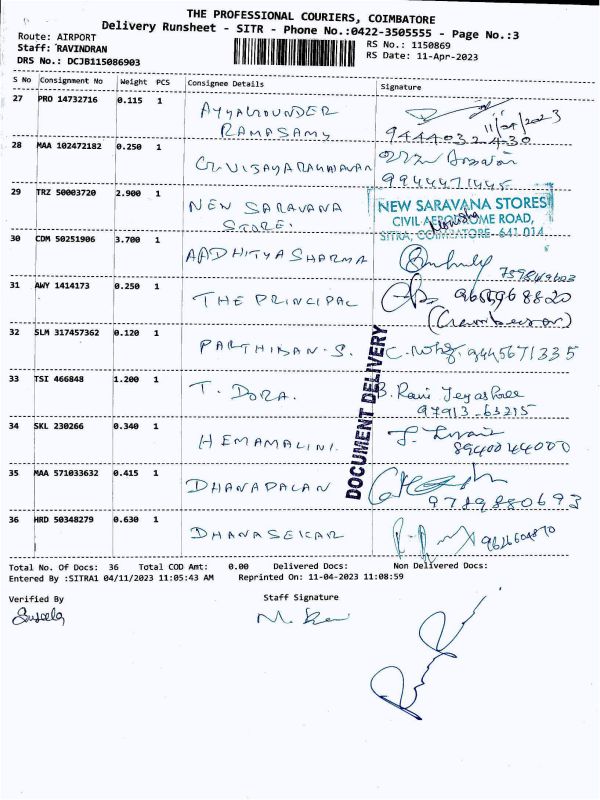 THE PROFESSIONAL COURIERS, COIMBATORE
Delivery Runsheet - SITR - Phone No.:0422-3505555 - Page No.:3
Route: AIRPORT
Staff: RAVINDRAN
DRS No.: DCJB115086903
RS No.: 1150869
RS Date: 11-Apr-2023
S No Consignment No Weight PCS Consignee Details Signature
27 PRO 14732716 0.115 1 AYYALGOUNDER RAMASAMY
11/04/2023
9444032430
28 MAA 102472182 0.250 1 G.VIJAYARAGHAVAN
9944471445
29 TRZ 50003720 2.900 1 NEW SARAVANA STORE.
NEW SARAVANA STORES
CIVIL AERODROME ROAD,
SITRA, COIMBATORE-641 014
30 CDM 50251906 3.700 1 AADHITYA SHARMA
31 AWY 1414173 0.250 1 THE PRINCIPAL
32 SLM 317457362 0.120 1 PARTHIBAN-S.
9445671335
33 TSI 466848 1.200 1 T. DORA.
B. Rani Jeyashree
97913-63215
34 SKL 230266 0.340 1 HEMAMALINI.
8940044000
35 MAA 571033632 0.415 1 DHANAPALAN
9789880693
36 HRD 50348279 0.630 1 DHANASEKAR
DOCUMENT DELIVERY
Total No. Of Docs: 36 Total COD Amt: 0.00 Delivered Docs: Non Delivered Docs:
Entered By :SITRA1 04/11/2023 11:05:43 AM Reprinted On: 11-04-2023 11:08:59
Verified By
Staff Signature
Suseela